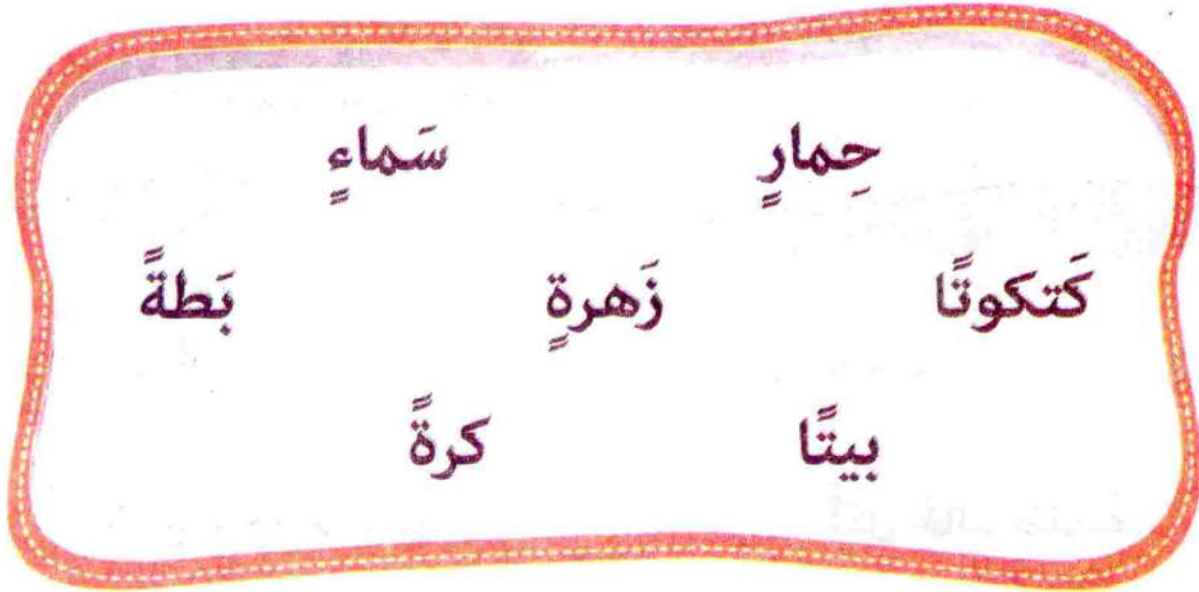 حِمارٍ سَماءٍ
كَتكوتًا زَهرةٍ بَطةً
بيتًا كرةً